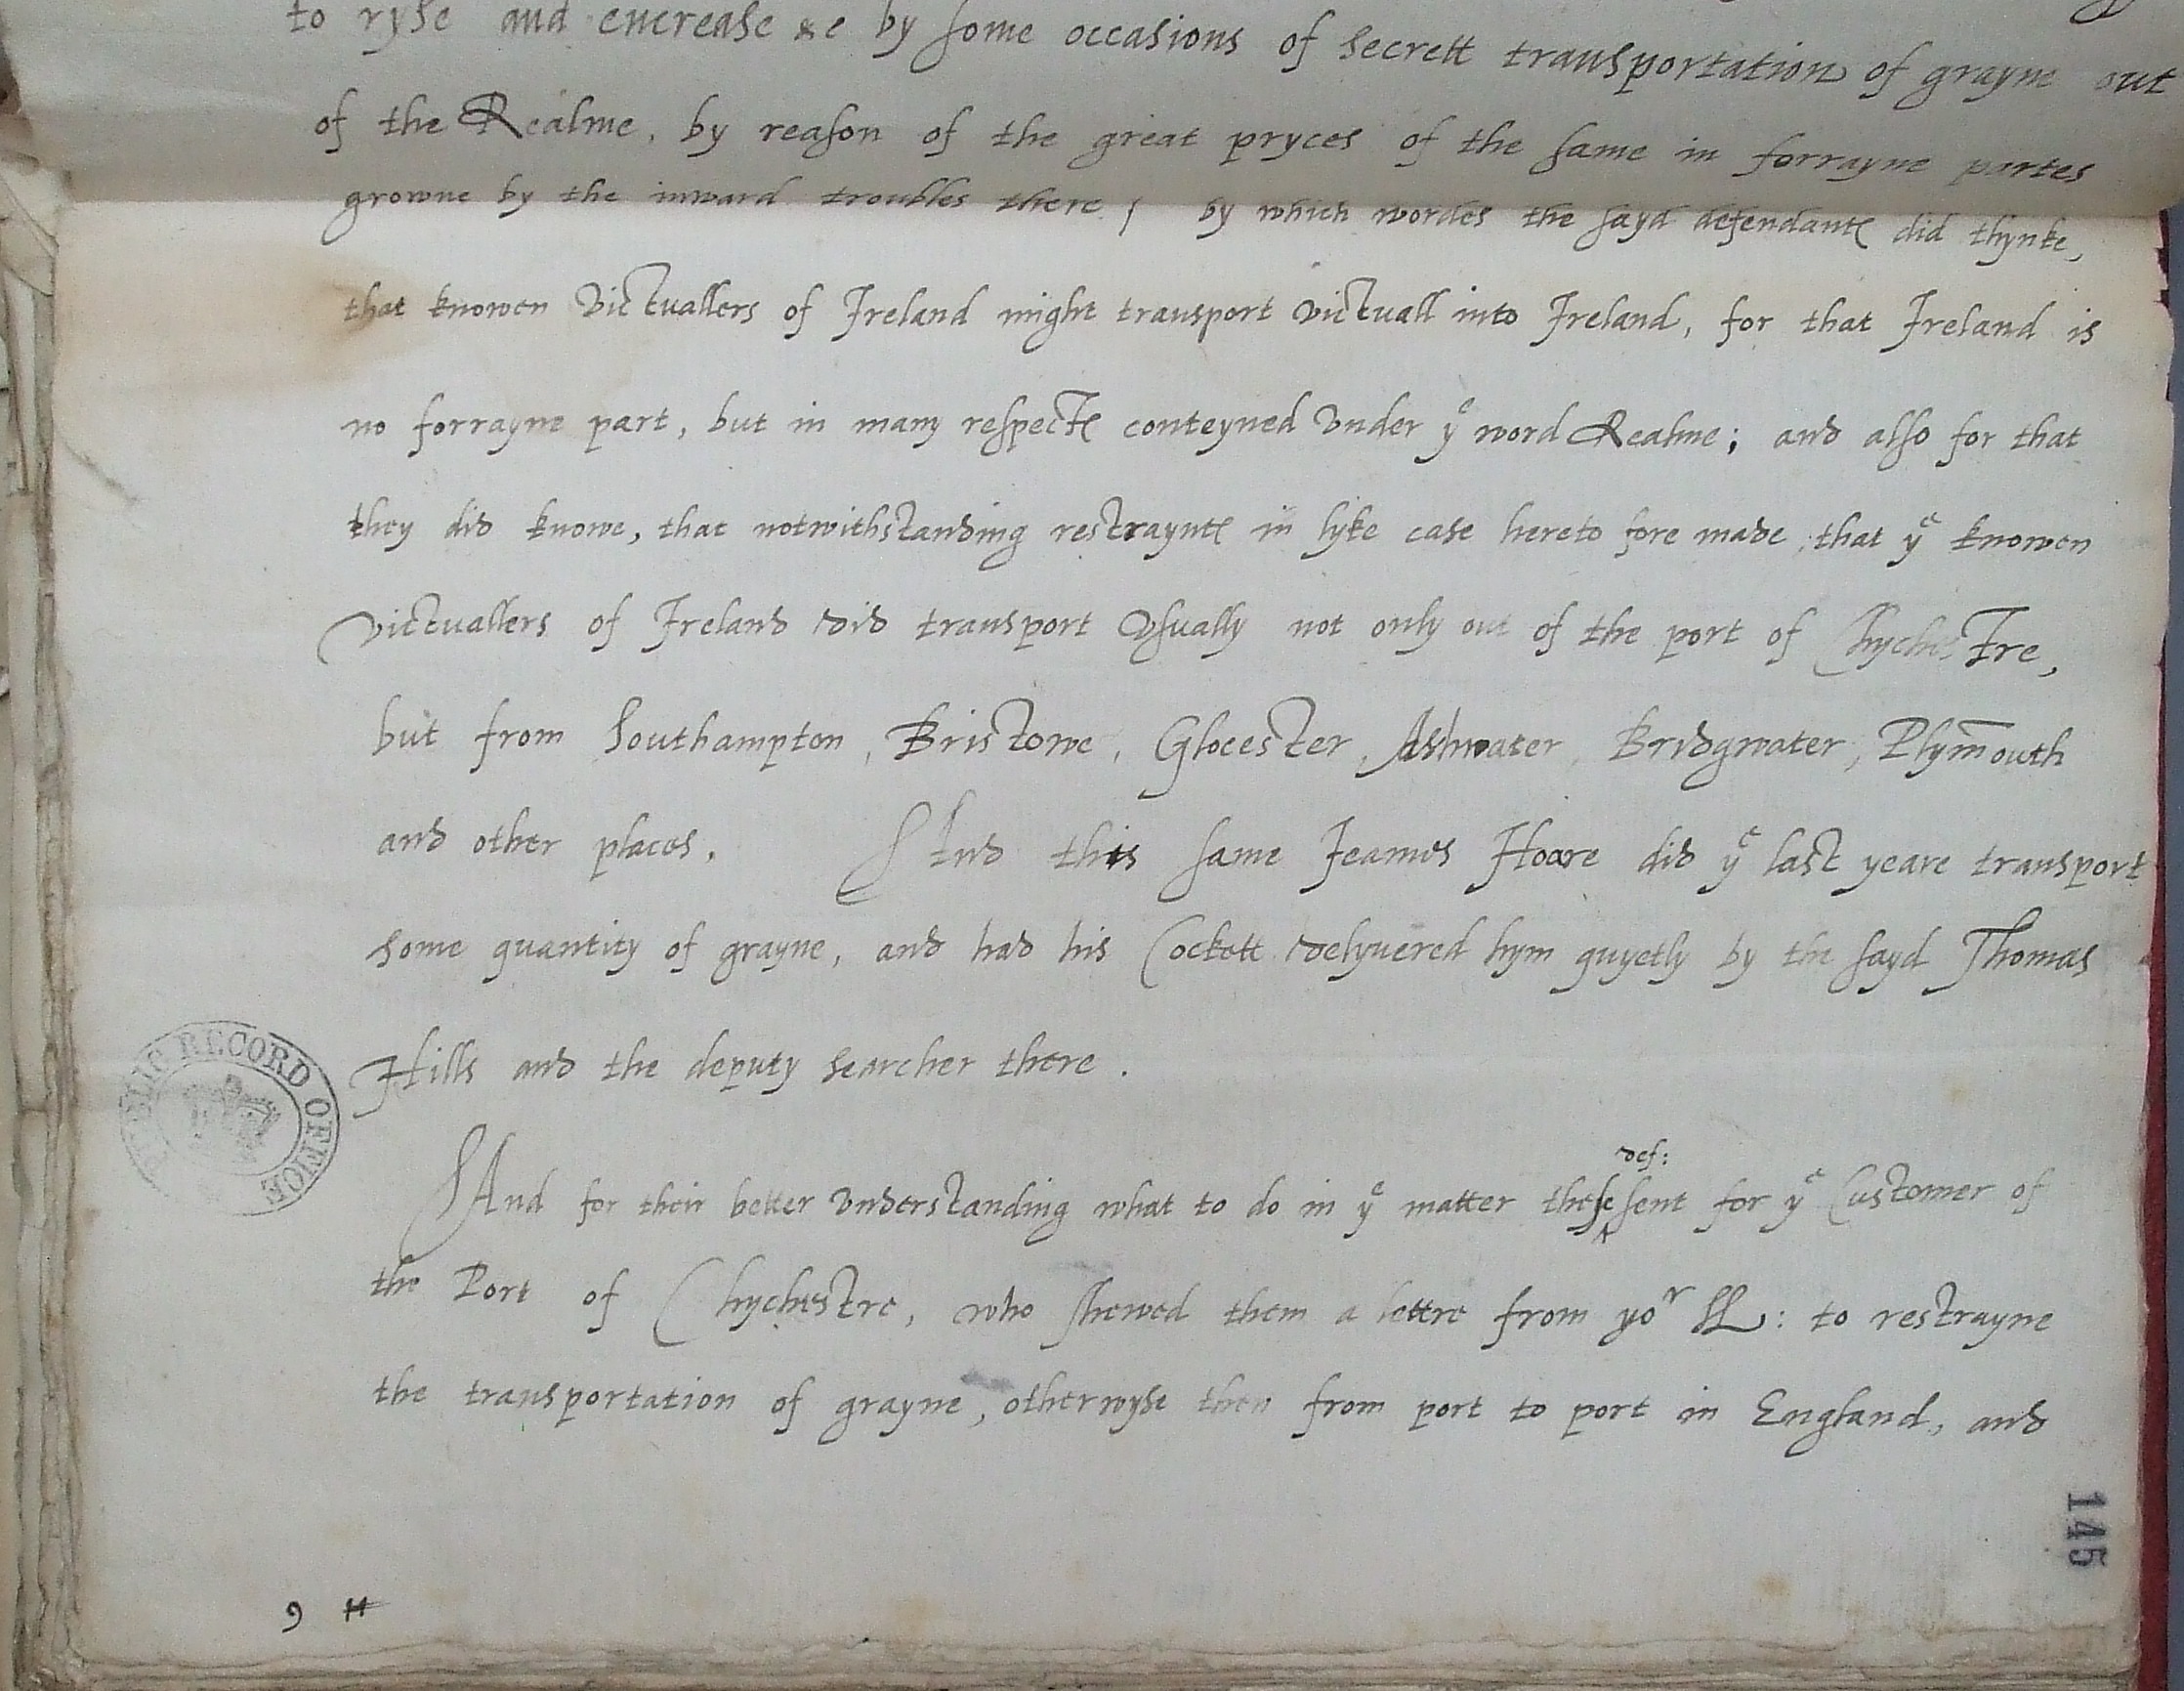 to ryse and encrease &c by some occasions of secrett transportation of grayne out
of the Realme, by reason of the great pryces of the same in forrayne partes
growne by the inward troubles there / by which wordes the sayd defendantes did thynke,
that knowen Victuallers of Ireland might transport victuall into Ireland, for that Ireland is
no forrayne part, but in many respectes conteyned vnder yᵉ word Realme; and also for that
they did knowe, that notwithstanding restrayntes in lyke case hereto fore made, that yᵉ knowen
victuallers of Ireland did transport vsually not only out of the port of Chychestre,
but from Southampton, Bristowe, Glocester, Ashwater, Bridgwater, Plym̄outh
and other places. And this same Jeames Hoare did yᵉ last yeare transport
some quantity of grayne, and had his Cockett delyuered hym quyetly by the sayd Thomas
Hills and the deputy searcher there.
def:
And for their better vnderstanding what to do in yᵉ matter these sent for yᵉ Customer of
the Port of Chychestre, who shewed them a lettre from yoʳ LL: to restrayne
the transportation of grayne, otherwyse then from port to port in England, and
PUBLIC RECORD OFFICE
145
9